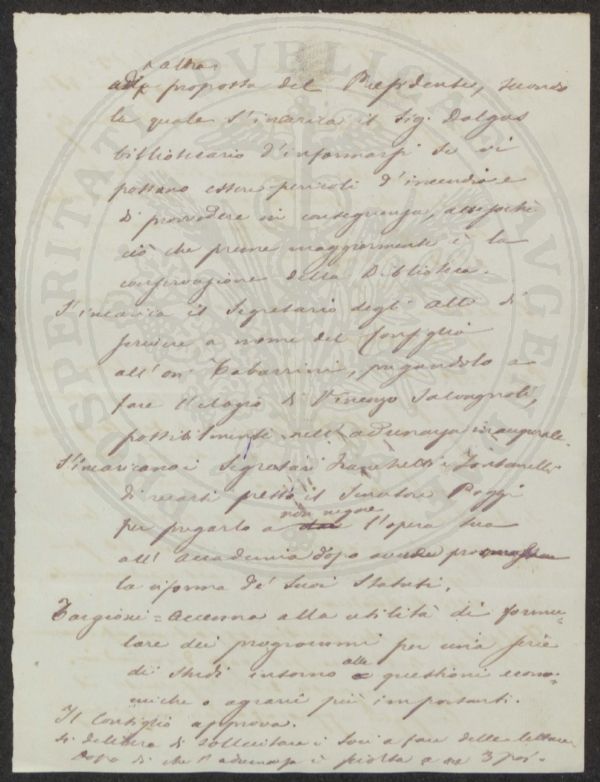 altra
proposta del Presidente, secondo
la quale s'incarica il Sig. Dalgas
bibliotecario d'informarsi se vi
possano essere pericoli d'incendio e
di provvedere in conseguenza,
ciò che preme maggiormente è la
conservazione della Biblioteca.
S'incarica il Segretario degli Atti di
scrivere a nome del Consiglio
all'on Tabarrini, pregandolo a
fare l'elogio di Vincenzo Salvagnoli,
possibilmente nell'adunanza inaugurale.
S'incaricano i Segretari Franchetti e Fontanelli
di recarsi presso il Senatore Poggi
non negare
per pregarlo a l'opera sua
all'Accademia dopo
la riforma de' suoi Statuti.
Targioni = accenna alla utilità di formu-
lare dei programmi per una serie
alle
di studi intorno a questioni econo-
miche o agrarie più importanti.
Il Consiglio approva.
Si delibera di sollecitare i Soci a fare delle letture
Dopo di che l'adunanza è sciolta a ore 3 pom.
PROSPERITATI PVBLICAE AVGENDAE